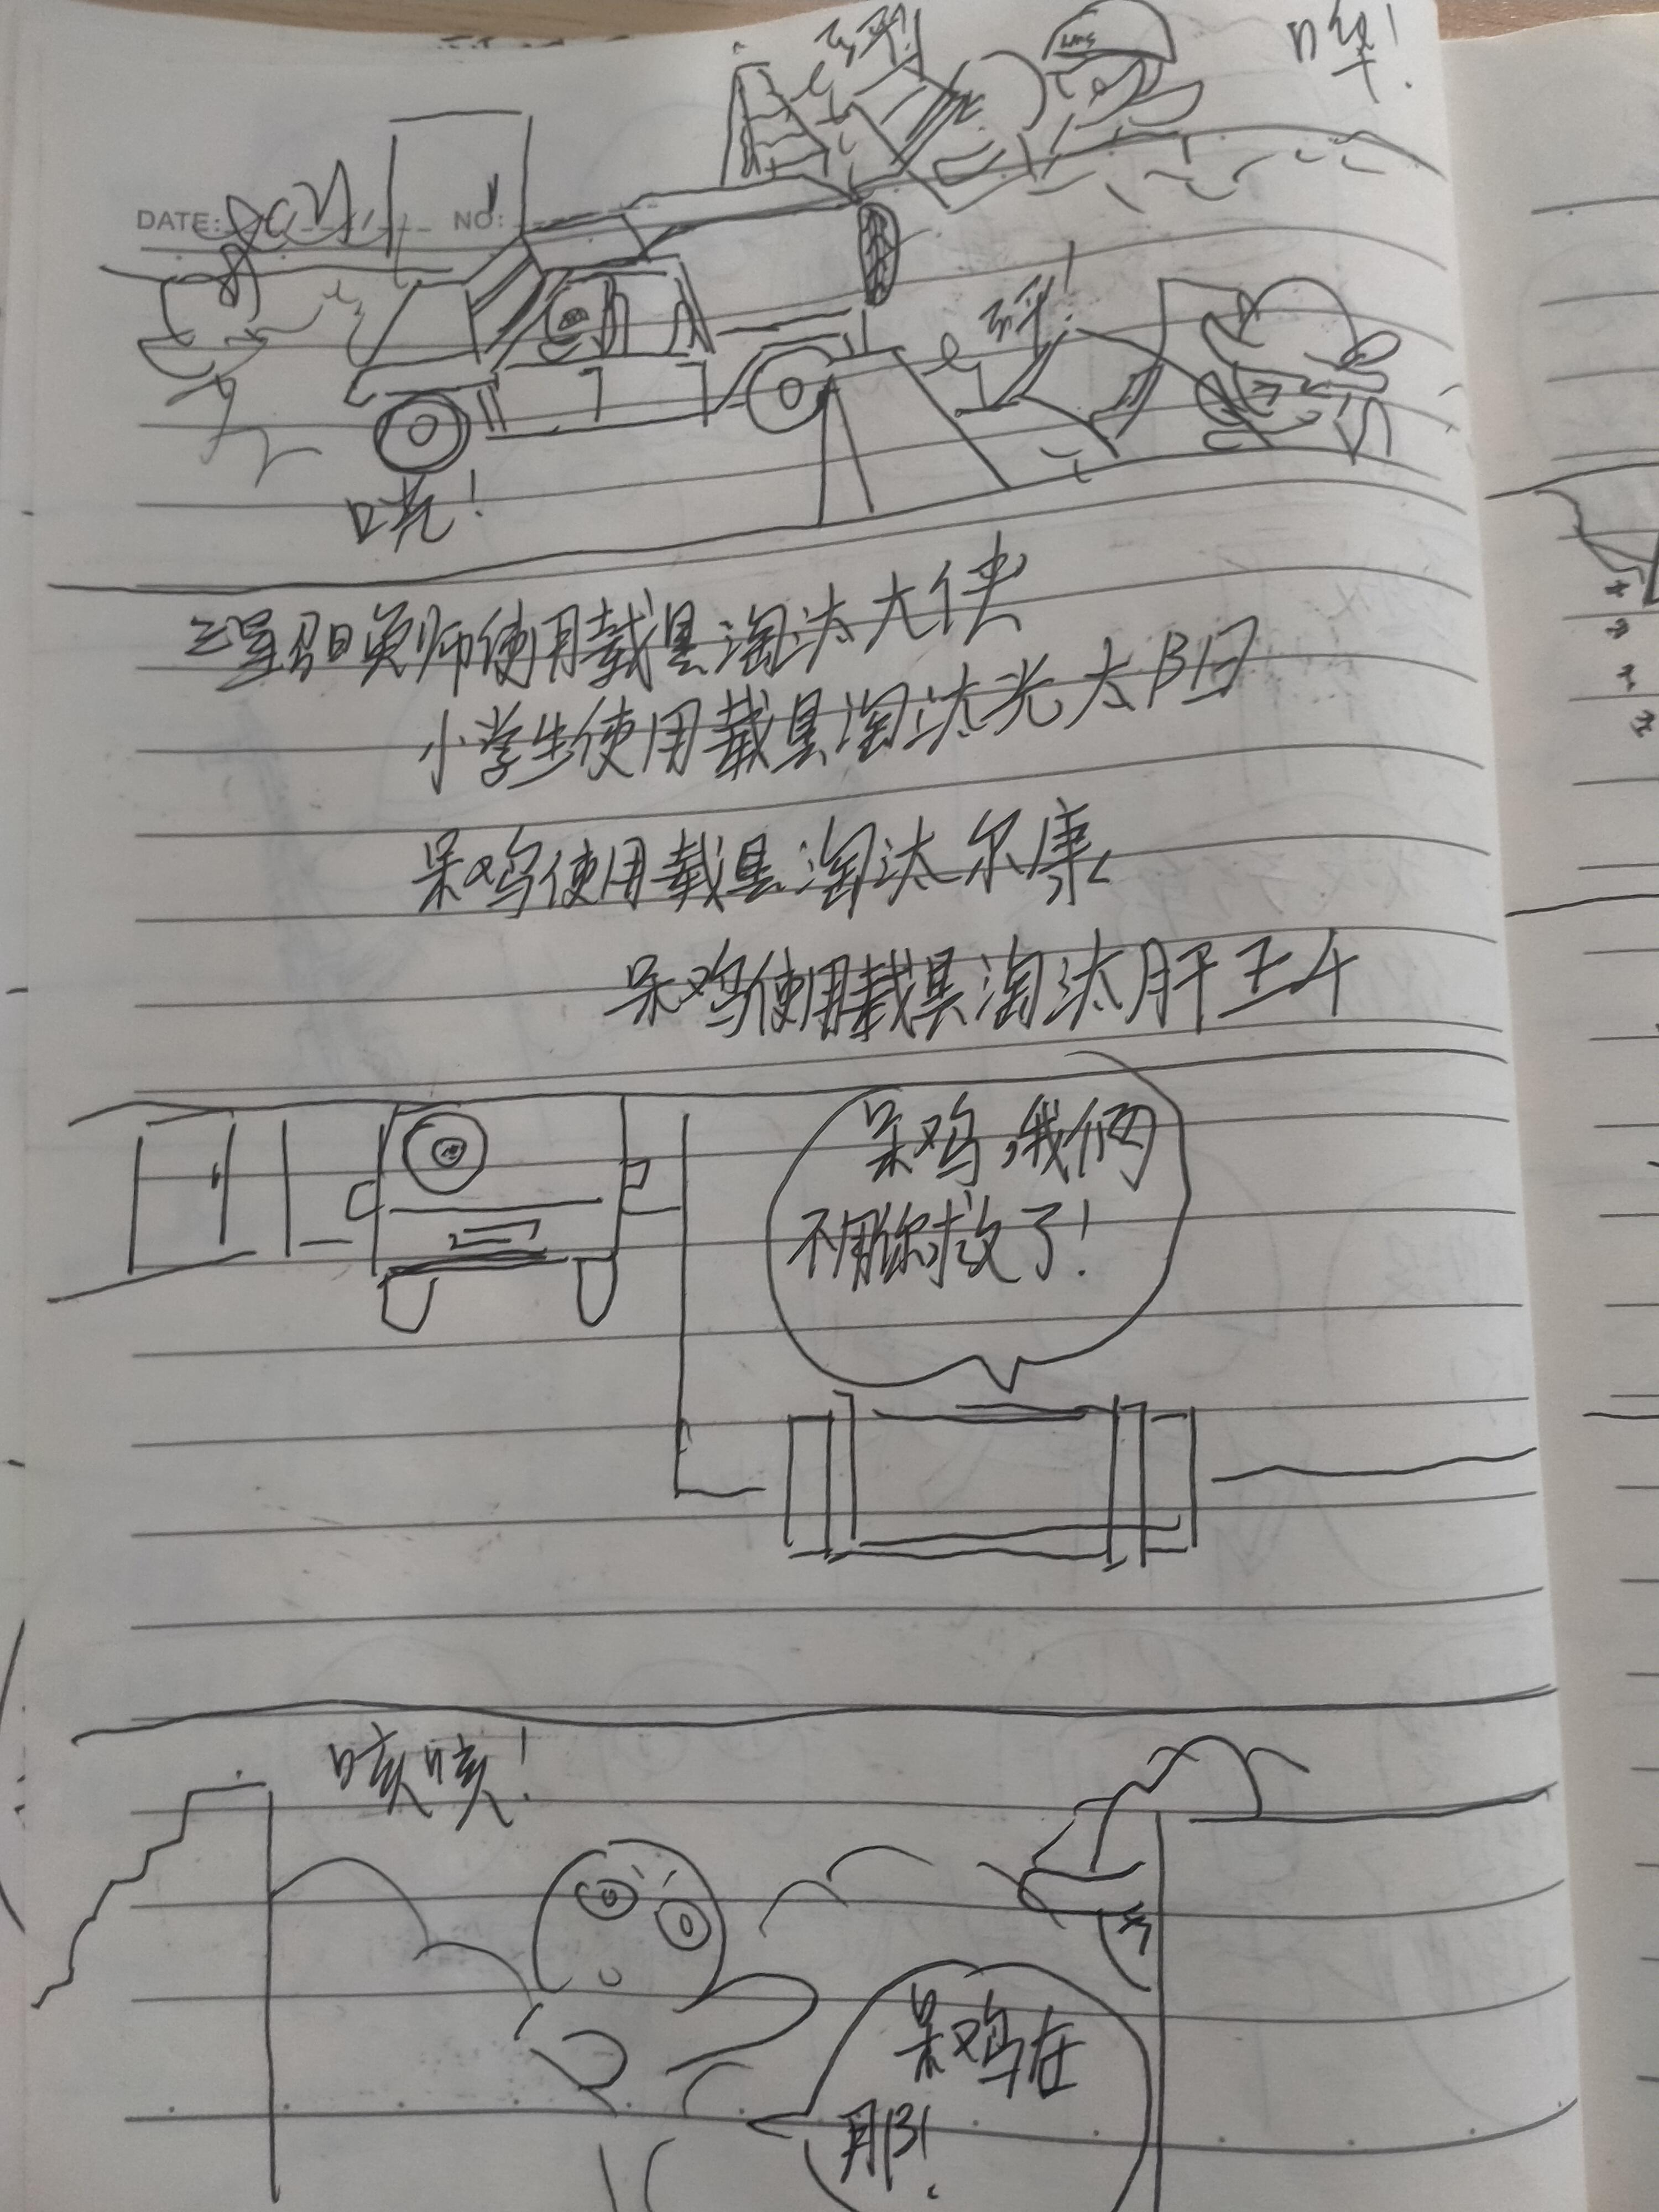 砰!
哗!
DATE: NO:
砰!
咣!
三星召唤师使用载具淘汰大侠
小学生使用载具淘汰光太阳
呆鸡使用载具淘汰尔康
呆鸡使用载具淘汰肝王斗
呆鸡,我们
不用你救了!
咳咳!
呆鸡在
那!